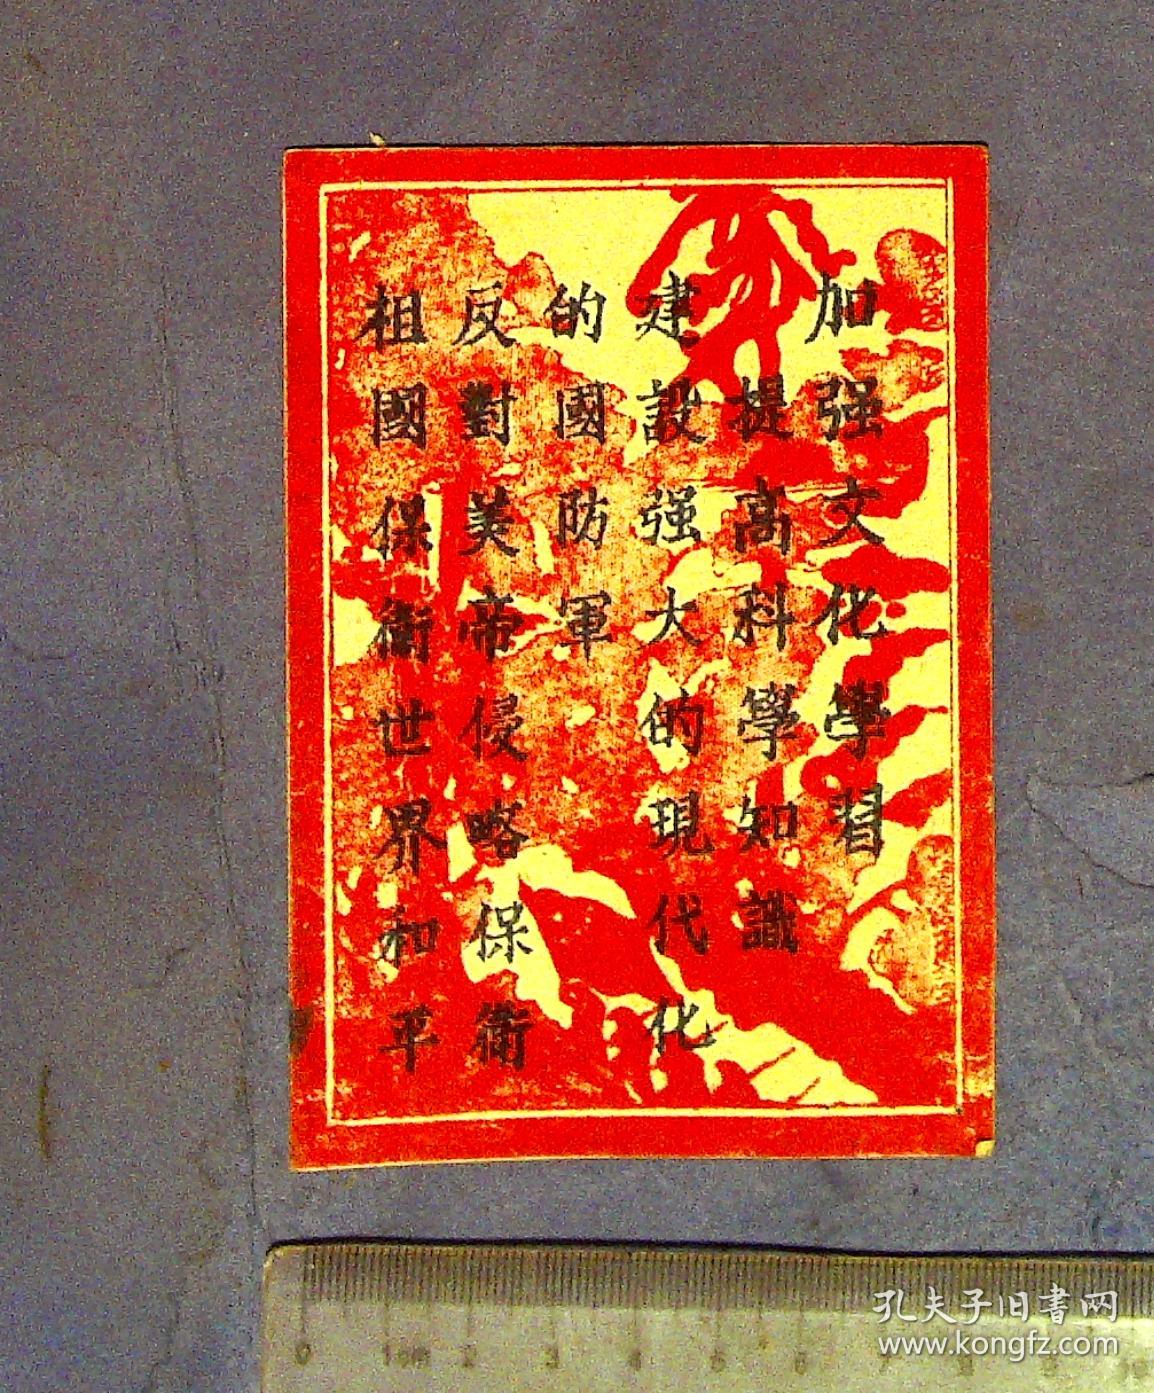 加强文化學習
提高科學知識
建設强大的現代化
的國防軍
反對美帝侵略保衛
祖國保衛世界和平
孔夫子旧書网
www.kongfz.com
0 1cm 2 3 4 5 6 7 8 9 10